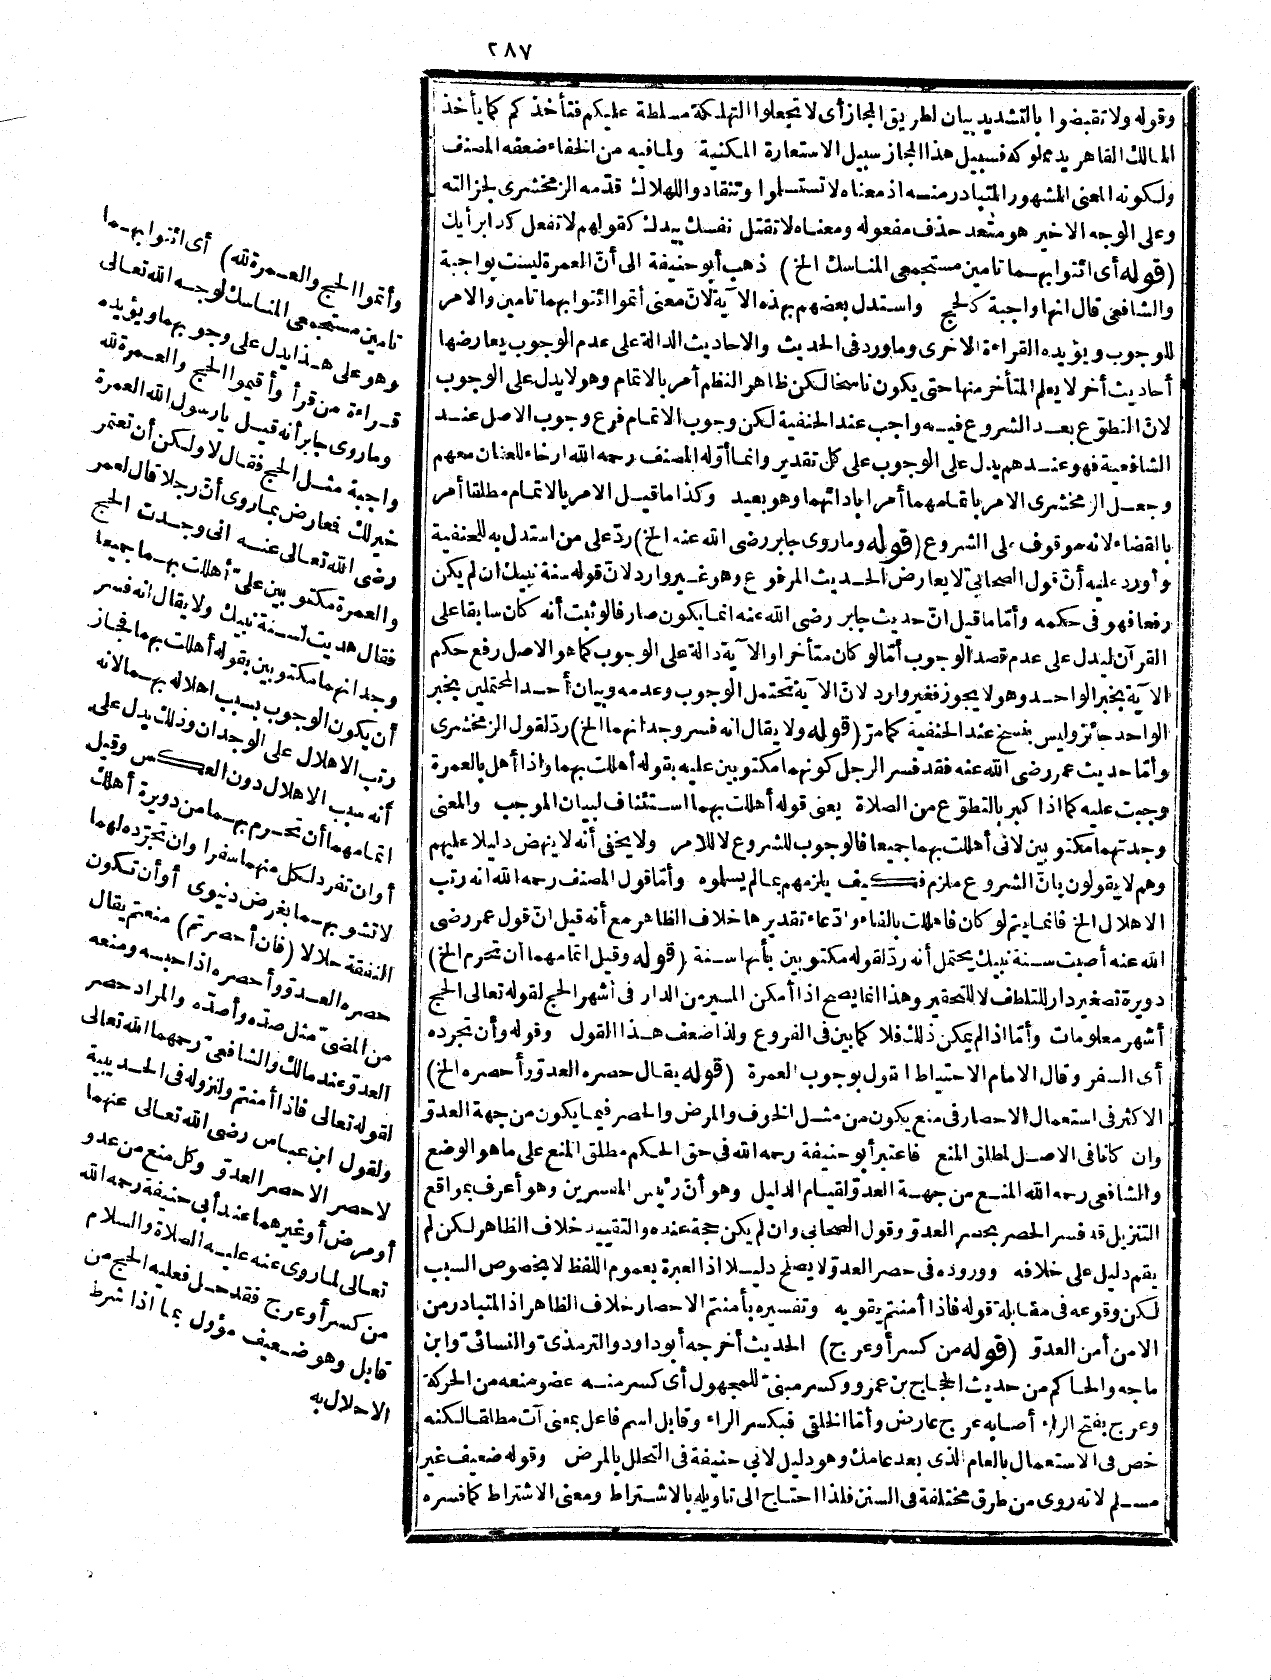 ٢٨٧
وقوله ولا تقبضوا بالتشديد بيان لطريق المجاز أى لا تجعلوا التهلكة مسلطة عليكم فتأخذكم كما يأخذ
المالك القاهر يد مملوكه فسبيل هذا المجاز سبيل الاستعارة المكنية ولما فيه من الخفاء ضعفه المصنف
ولكونه المعنى المشهور المتبادر منه اذ معناه لا تستسلموا وتنقادوا للهلاك قدّمه الزمخشرى لجزالته
وعلى الوجه الاخير هو متعد حذف مفعوله ومعناه لا تقتل نفسك بيدك كقولهم لا تفعل كذا برأيك
(قوله أى ائتوا بهما تامين مستجمعى المناسك الخ) ذهب أبو حنيفة الى أنّ العمرة ليست بواجبة
والشافعى قال انها واجبة كالحج واستدل بعضهم بهذه الآية لانّ معنى أتموا ائتوا بهما تامين والامر
للوجوب ويؤيده القراءة الاخرى وما ورد فى الحديث والاحاديث الدالة على عدم الوجوب يعارضها
أحاديث أخر لا يعلم المتأخر منها حتى يكون ناسخا لكن ظاهر النظم أمر بالاتمام وهو لا يدل على الوجوب
لانّ التطوّع بعد الشروع فيه واجب عند الحنفية لكن وجوب الاتمام فرع وجوب الاصل عند
الشافعية فهو عندهم يدل على الوجوب على كل تقدير وانما أوّله المصنف رحمه الله ارخاء للعنان معهم
وجعل الزمخشرى الامر باتمامهما أمرا بادائهما وهو بعيد وكذا ما قيل الامر بالاتمام مطلقا أمر
بالقضاء لانه موقوف على الشروع (قوله وما روى جابر رضى الله عنه الخ) ردّ على من استدل به للحنفية
وأورد عليه أنّ قول الصحابىّ لا يعارض الحديث المرفوع وهو غير وارد لانّ قوله سنة نبيك ان لم يكن
رفعا فهو فى حكمه وأمّا ما قيل انّ حديث جابر رضى الله عنه انما يكون صارفا لو ثبت أنه كان سابقا على
القرآن ليدل على عدم قصد الوجوب أمّا لو كان متأخرا والآية دالة على الوجوب كما هو الاصل رفع حكم
الآية بخبر الواحد وهو لا يجوز فغير وارد لانّ الآية تحتمل الوجوب وعدمه وبيان أحد المحتملين بخبر
الواحد جائز وليس بنسخ عند الحنفية كما مرّ (قوله ولا يقال انه فسر وجدانهما الخ) ردّ لقول الزمخشرى
وأمّا حديث عمر رضى الله عنه فقد فسر الرجل كونهما مكتوبين عليه بقوله أهللت بهما واذا أهل بالعمرة
وجبت عليه كما اذا كبر بالتطوّع من الصلاة يعنى قوله أهللت بهما استئناف لبيان الموجب والمعنى
وجدتهما مكتوبين لانى أهللت بهما جميعا فالوجوب للشروع لا للامر ولا يخفى أنه لا ينهض دليلا عليهم
وهم لا يقولون بانّ الشروع ملزم فكيف يلزمهم بما لم يسلموه وأمّا قول المصنف رحمه الله انه رتب
الاهلال الخ فانما يتم لو كان فاهللت بالفاء وادّعاء تقديرها خلاف الظاهر مع أنه قيل انّ قول عمر رضى
الله عنه أصبت سنة نبيك يحتمل أنه ردّ لقوله مكتوبين بأنها سنة (قوله وقيل اتمامهما أن تحرم الخ)
دويرة تصغير دار للتلطف لا للتحقير وهذا انما يصح اذا أمكن المسير من الدار فى أشهر الحج لقوله تعالى الحج
أشهر معلومات وأمّا اذا لم يمكن ذلك فلا كما بين فى الفروع ولذا ضعف هذا القول وقوله وأن تجرده
أى السفر وقال الامام الاحتياط القول بوجوب العمرة (قوله يقال حصره العدوّ وأحصره الخ)
الاكثر فى استعمال الاحصار فى منع يكون من مثل الخوف والمرض والحصر فيما يكون من جهة العدوّ
وان كانا فى الاصل لمطلق المنع فاعتبر أبو حنيفة رحمه الله فى حق الحكم مطلق المنع على ما هو الوضع
والشافعى رحمه الله المنع من جهة العدوّ لقيام الدليل وهو أنّ رئيس المفسرين وهو أعرف بمواقع
التنزيل قد فسر الحصر بحصر العدوّ وقول الصحابى وان لم يكن حجة عنده والتقييد خلاف الظاهر لكن لم
يقم دليل على خلافه ووروده فى حصر العدوّ لا يصلح دليلا اذ العبرة بعموم اللفظ لا بخصوص السبب
لكن وقوعه فى مقابلة قوله فاذا أمنتم يقويه وتفسيره بأمنتم الاحصار خلاف الظاهر اذ المتبادر من
الامن أمن العدوّ (قوله من كسر أو عرج) الحديث أخرجه أبو داود والترمذىّ والنسائىّ وابن
ماجه والحاكم من حديث الحجاج بن عمرو وكسر مبنىّ للمجهول أى كسر منه عضو منعه من الحركة
وعرج بفتح الراء أصابه عرج عارض وأمّا الخلقى فبكسر الراء وقابل اسم فاعل بمعنى آت مطلقا لكنه
خص فى الاستعمال بالعام الذى بعد عامك وهو دليل لابى حنيفة فى التحلل بالمرض وقوله ضعيف غير
مسلم لانه روى من طرق مختلفة فى السنن فلذا احتاج الى تاويله بالاشتراط ومعنى الاشتراط كما فسره
وأتموا الحج والعمرة لله) أى ائتوا بهما
تامين مستجمعى المناسك لوجه الله تعالى
وهو على هذا يدل على وجوبهما ويؤيده
قراءة من قرأ وأقيموا الحج والعمرة لله
وما روى جابر أنه قيل يا رسول الله العمرة
واجبة مثل الحج فقال لا ولكن أن تعتمر
خير لك فعارض بما روى أنّ رجلا قال لعمر
رضى الله تعالى عنه انى وجدت الحج
والعمرة مكتوبين علىّ أهللت بهما جميعا
فقال هديت لسنة نبيك ولا يقال انه فسر
وجدانهما مكتوبين بقوله أهللت بهما فجاز
أن يكون الوجوب بسبب اهلاله بهما لانه
رتب الاهلال على الوجدان وذلك يدل على
أنه سبب الاهلال دون العكس وقيل
اتمامهما أن تحرم بهما من دويرة أهلك
أو ان تفرد لكل منهما سفرا وان تجرّده لهما
لا تشوبهما بغرض دنيوى أو أن تكون
النفقة حلالا (فان أحصرتم) منعتم يقال
حصره العدوّ وأحصره اذا حبسه ومنعه
من المضىّ مثل صدّه وأصدّه والمراد حصر
العدوّ عند مالك والشافعىّ رحمهما الله تعالى
لقوله تعالى فاذا أمنتم ولنزوله فى الحديبية
ولقول ابن عباس رضى الله تعالى عنهما
لا حصر الا حصر العدوّ وكل منع من عدو
أو مرض أو غيرهما عند أبى حنيفة رحمه الله
تعالى لما روى عنه عليه الصلاة والسلام
من كسر أو عرج فقد حل فعليه الحج من
قابل وهو ضعيف مؤول بما اذا شرط
الاحلال به